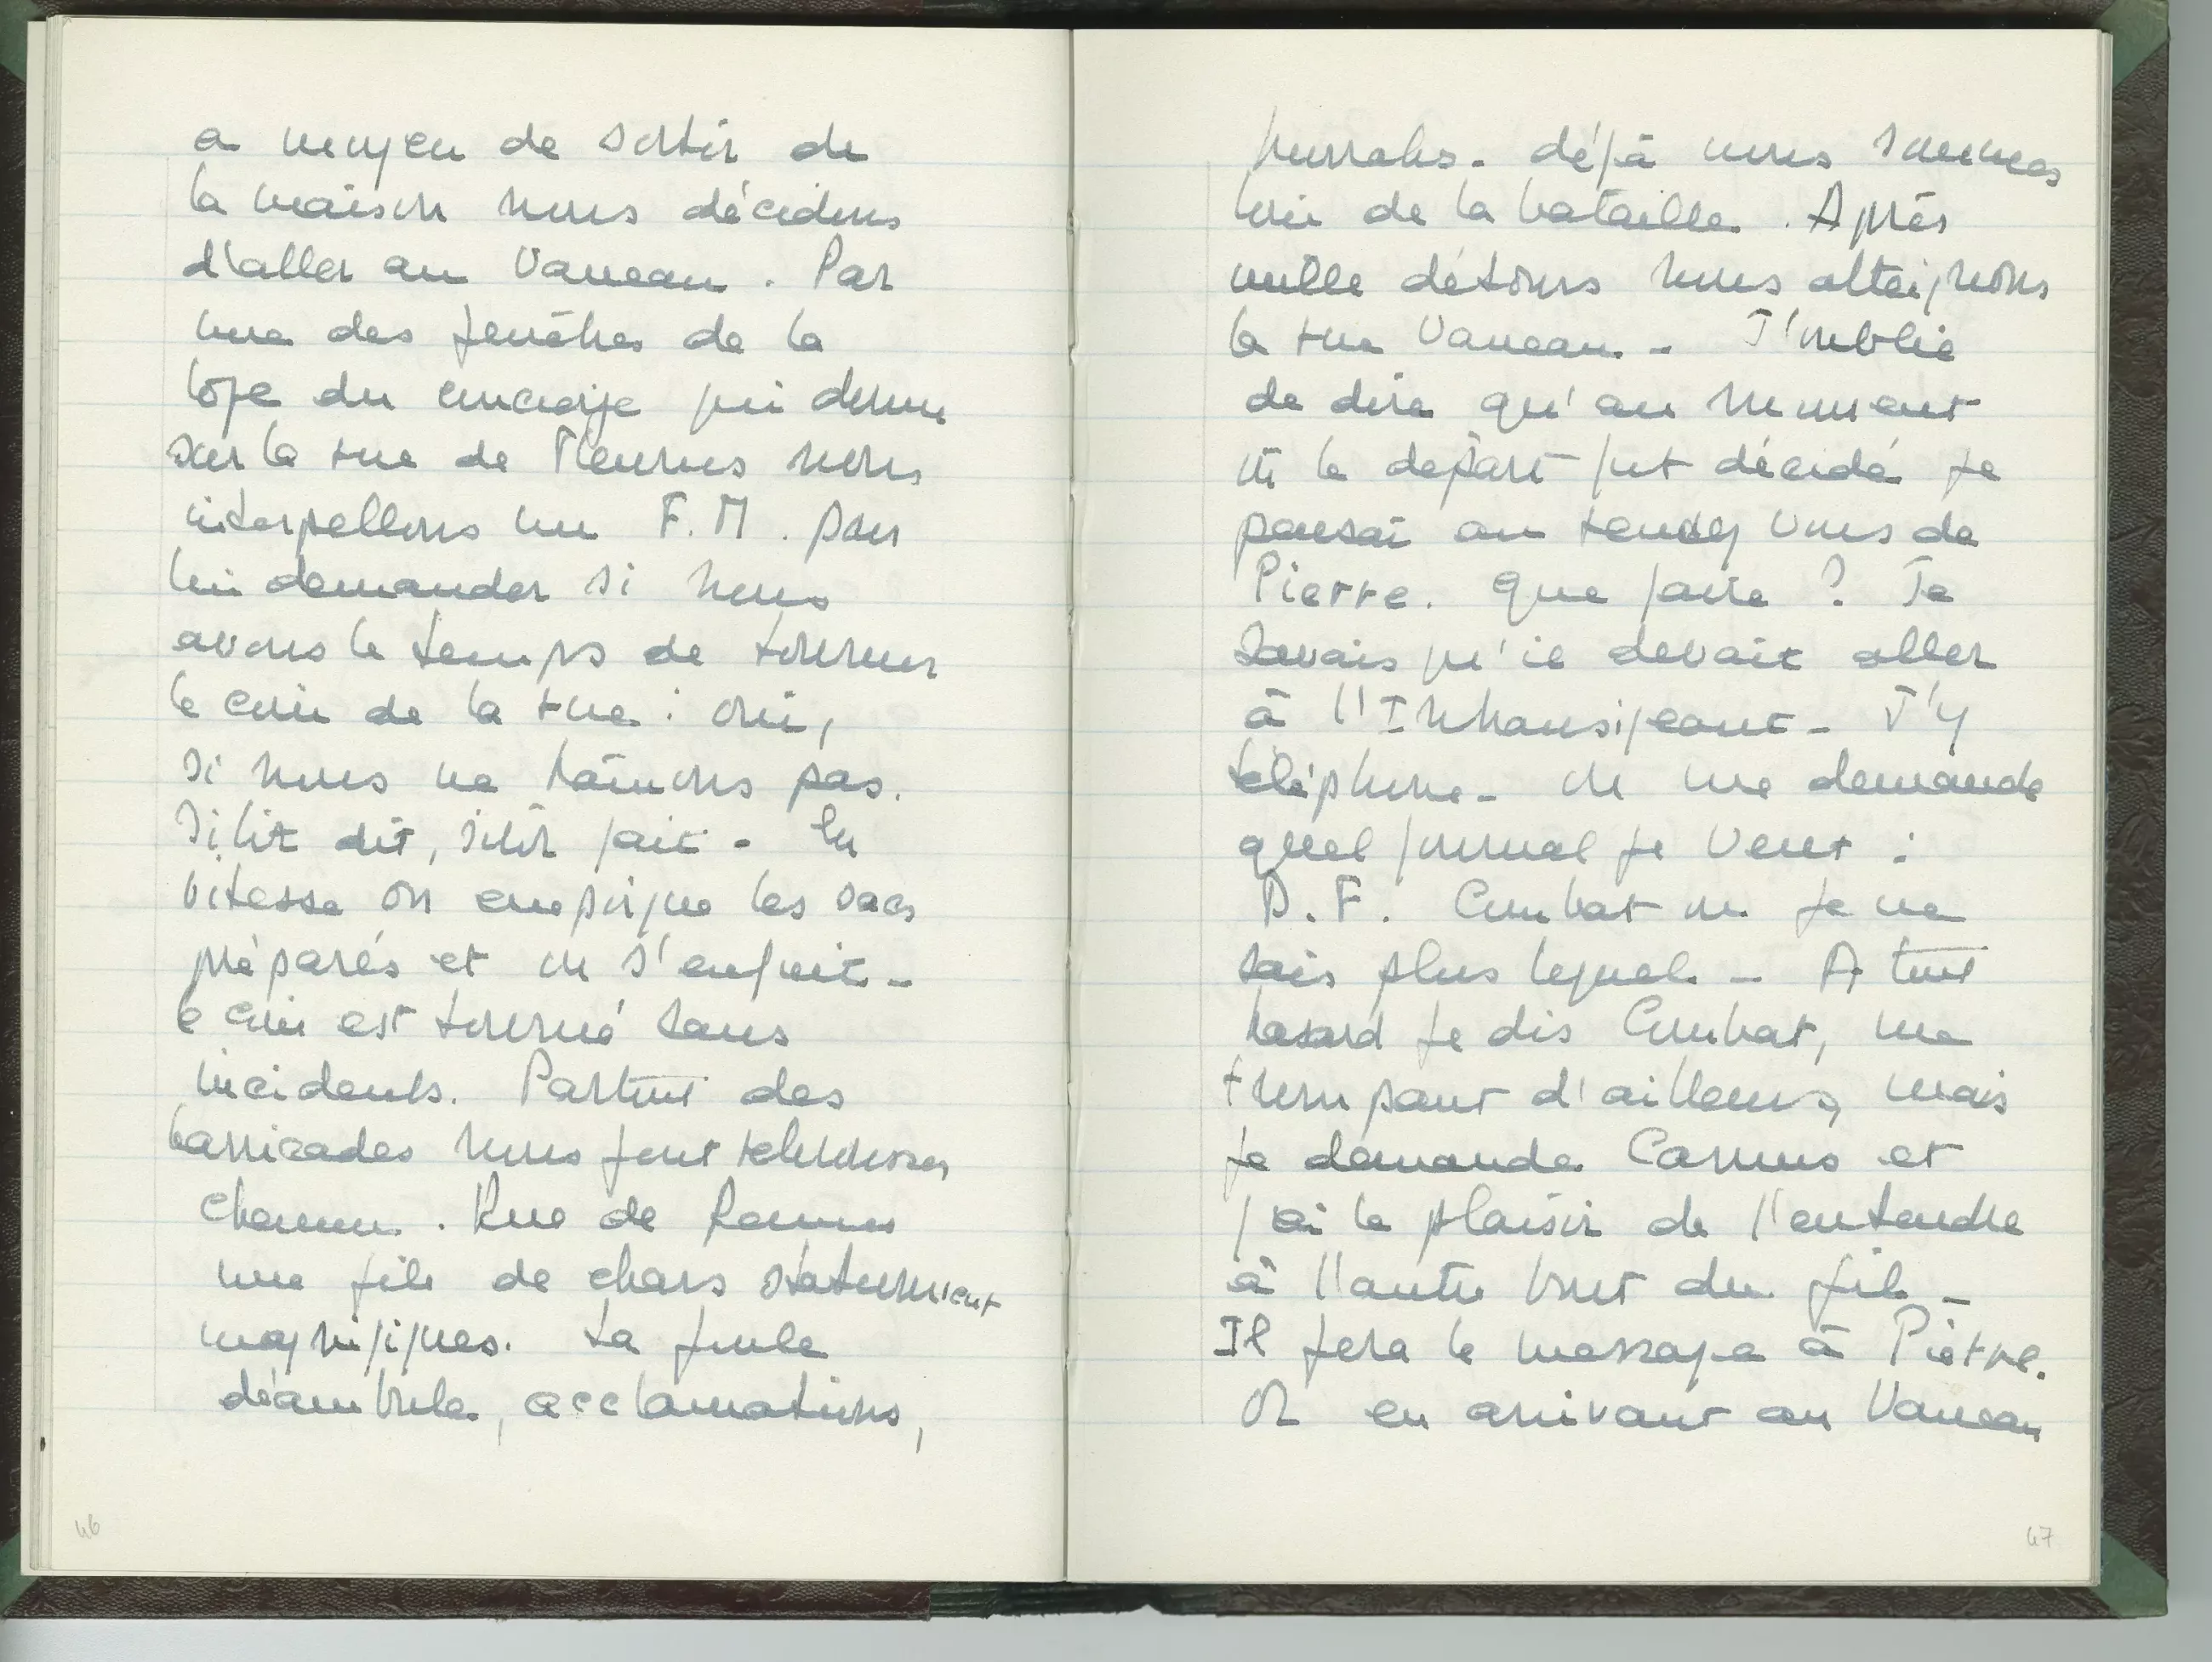 a moyen de sortir de
la maison nous décidons
d'aller au Vaneau. Par
une des fenêtres de la
loge du concierge qui donne
sur la rue de Fleurus nous
interpellons un F.M. pour
lui demander si nous
avons le temps de tourner
le coin de la rue : oui,
si nous ne traînons pas.
Sitôt dit, sitôt fait - En
vitesse on empoigne les sacs
préparés et on s'enfuit -
le coin est tourné sans
incidents. Partout des
barricades nous font rebrousser
chemin. Rue de Rennes
une file de chars stationnent
magnifiques. La foule
déambule, acclamations,
46
hurrahs - déjà nous sommes
loin de la bataille. Après
mille détours nous atteignons
la rue Vaneau - J'oublie
de dire qu'au moment
où le départ fut décidé je
pensai au rendez vous de
Pierre. Que faire ? Je
savais qu'il devait aller
à l'Intransigeant - J'y
téléphone - on me demande
quel journal je veux :
D.F. Combat ou je ne
sais plus lequel - A tout
hasard je dis Combat, me
trompant d'ailleurs, mais
je demande Camus et
j'ai le plaisir de l'entendre
à l'autre bout du fil -
Il fera le message à Pierre.
Or en arrivant au Vaneau
47